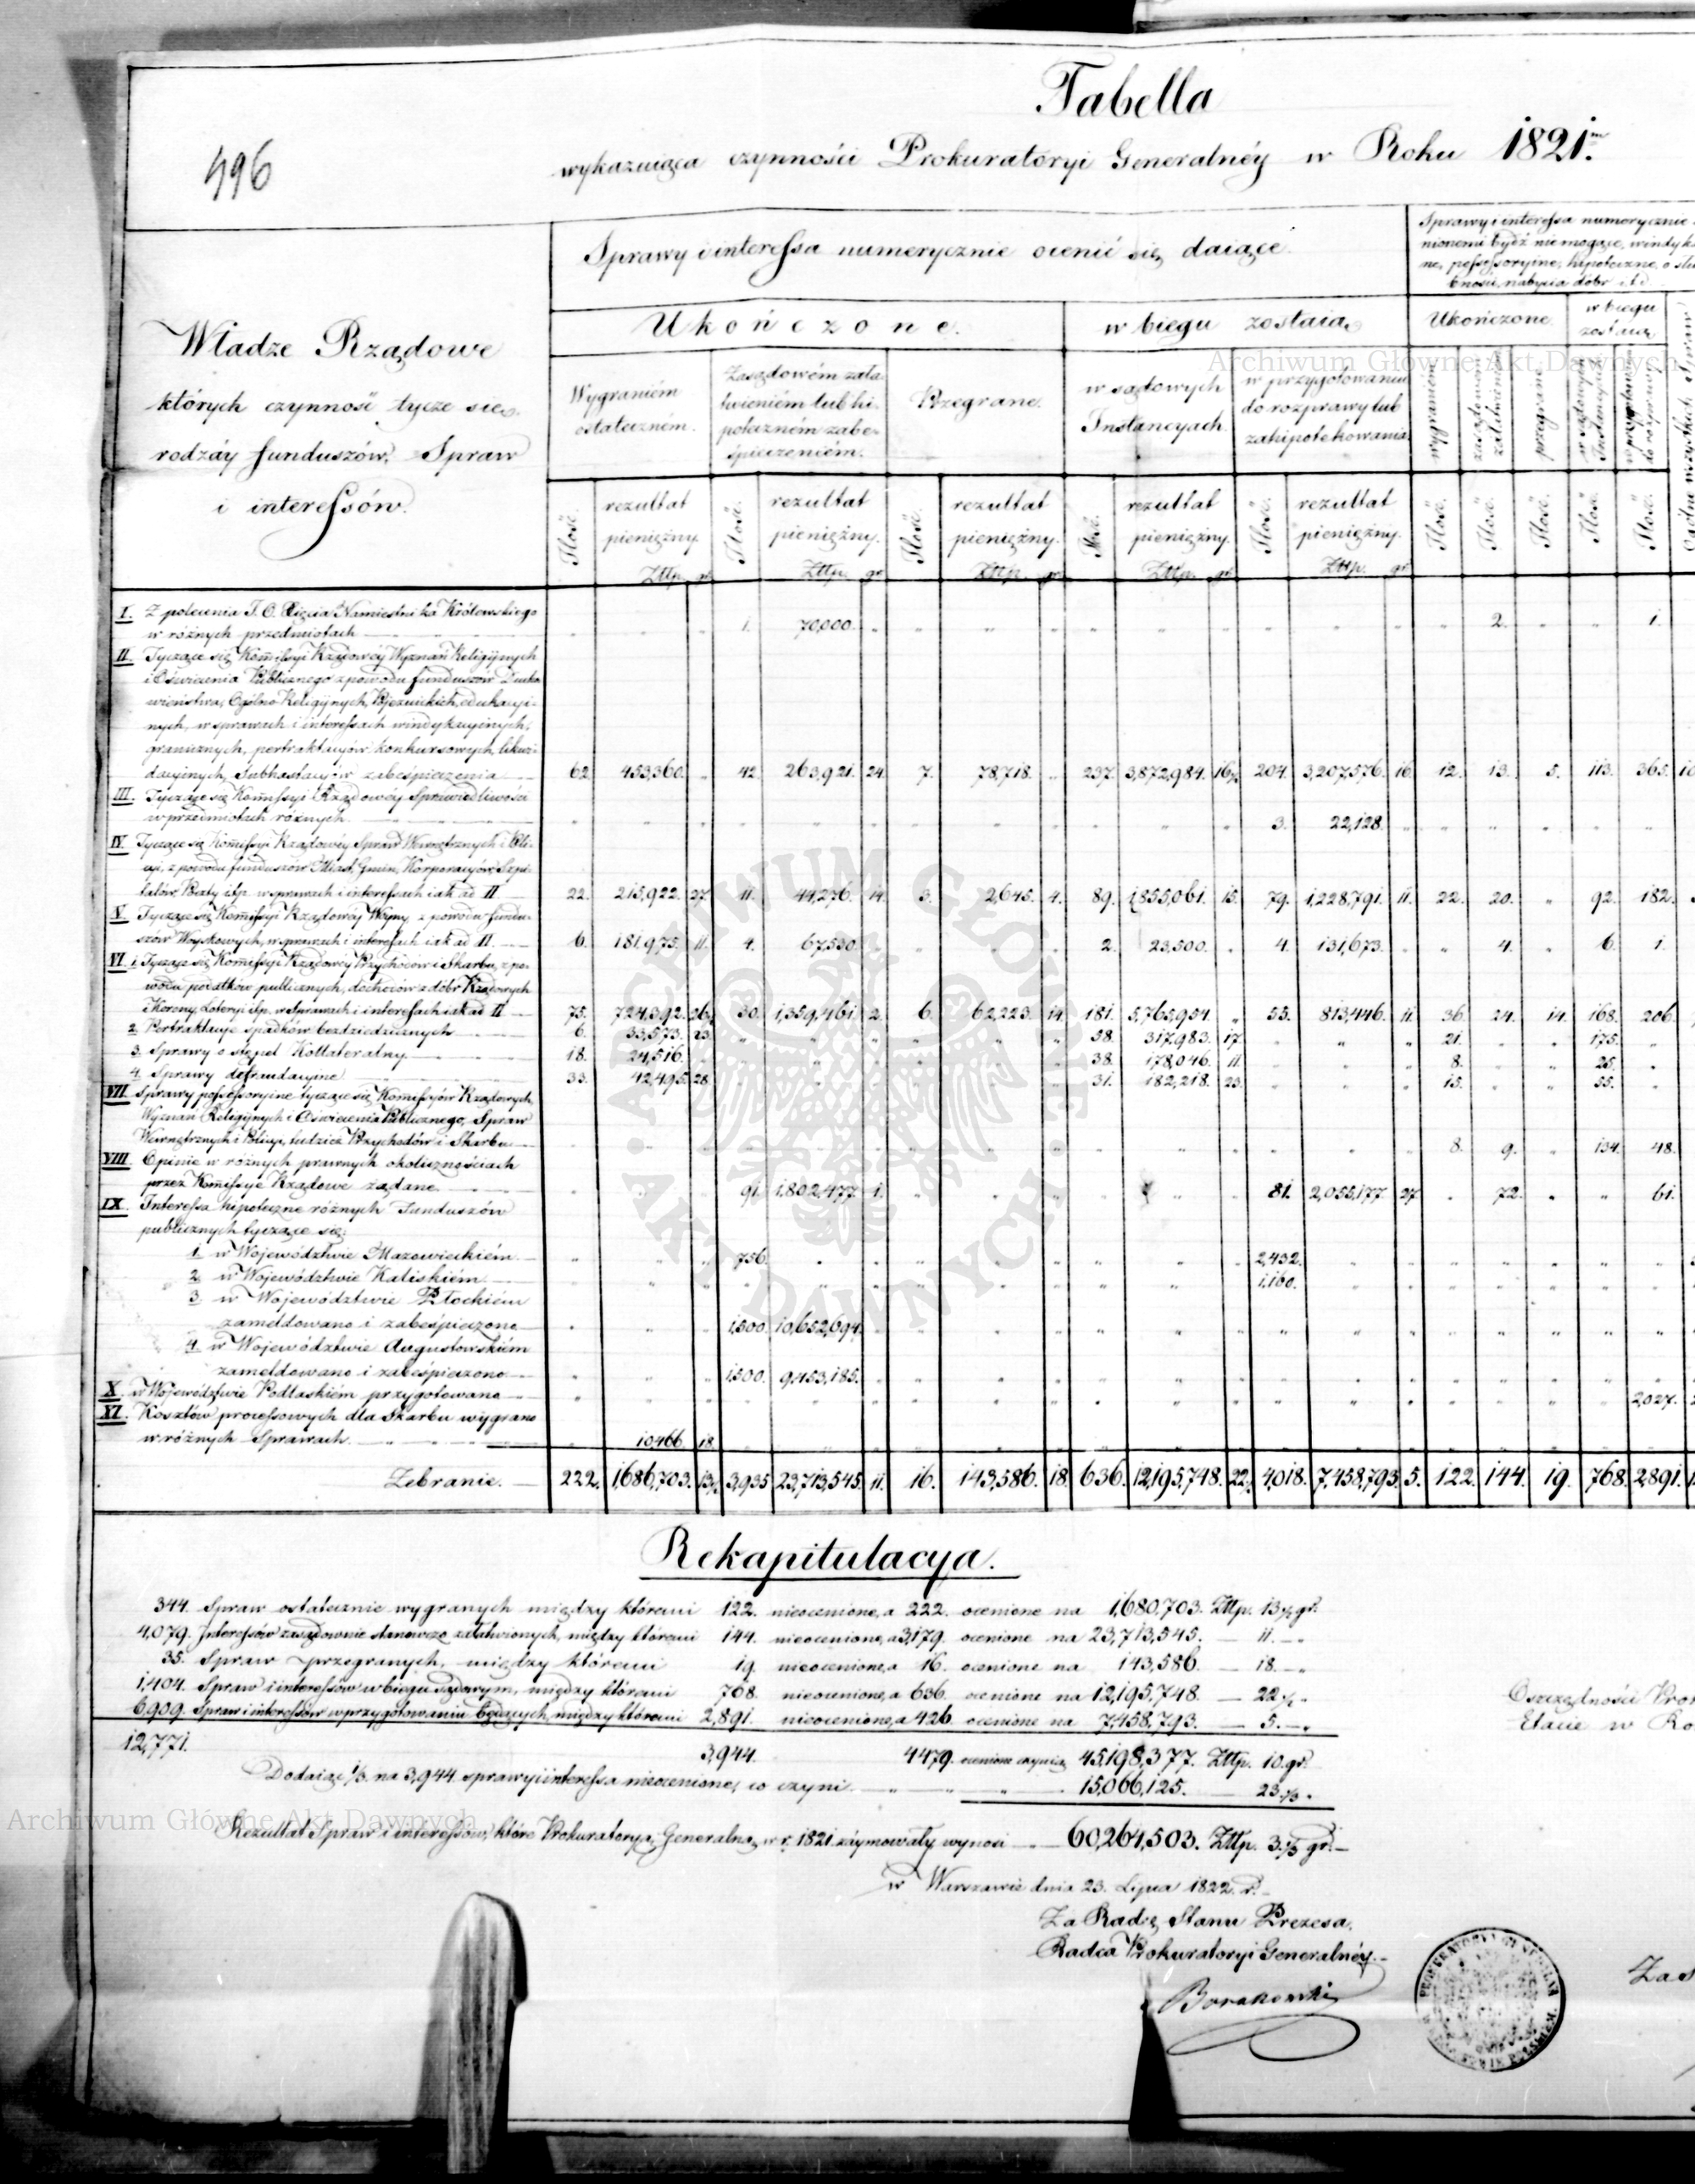 496
Tabella
wykazuiąca czynności Prokuratoryi Generalnéy w Roku 1821.
Władze Rządowe
których czynność tycze się
rodzáy funduszów, Spraw
i interessów.
Sprawy i interessa numerycznie ocenić się daiące.
Sprawy i interessa numerycznie
nionemi bydź nie mogące, windyk
ne, possessoryine, hipoteczne, o
bności, nabycia dóbr i t d
Ukończone.
w biegu zostaią
Ukończone
w biegu
zostaią
Wygraniem
ostateczném.
Zasądowém zała
twieniém lub hi-
poteczném zabe-
spieczeniém.
Przegrane.
w sądowych
Instancyach
w przygotowaniu
do rozprawy lub
zahipotekowania
wygraniem
zasądowem
załatwieniem
przegrane
w sądowych
Instancyach
w przygotowaniu
do rozprawy
Ogólna wszystkich Spraw
Ilość. rezultat pieniężny. Złtp. gr. Ilość. rezultat pieniężny. Złtp. gr. Ilość. rezultat pieniężny. Złtp. gr. Ilość. rezultat pieniężny. Złtp. gr. Ilość. rezultat pieniężny. Złtp. gr. Ilość. Ilość. Ilość. Ilość. Ilość.
I. Z polecenia J. O. Xięcia Namiestnika Królewskiego
w różnych przedmiotach 1. 70,000. 2. 1.
II. Tyczące się Kommissyi Rządowéy Wyznań Religijnych
i Oświecenia Publicznego z powodu funduszów Ducho
wieństwa, Ogólno-Religijnych, Pojezuickich, edukacyi-
nych, w sprawach i interessach windykacyinych,
granicznych, pertraktacyów, konkursowych, likwi-
dacyinych, Subhastacyów zabespieczenia 62. 453,360. 42. 263,921. 24. 7. 78,718. 237. 3,872,984. 16½ 204. 3,207,576. 16. 12. 13. 5. 113. 365.
III. Tyczące się Kommissyi Rządowéy Sprawiedliwości
w przedmiotach różnych. 3. 22,128.
IV. Tyczące się Kommissyi Rządowéy Spraw Wewnętrznych i Poli-
cyi, z powodu funduszów Miast, Gmin, Korporacyów, Szpi-
talów, Poczty itp. w sprawach i interessach iak ad II 22. 215,922. 27. 11. 44,276. 14. 3. 2,645. 4. 89. 1,855,061. 15. 79. 1,228,791. 11. 22. 20. 92. 182.
V. Tyczące się Kommissyi Rządowéy Woyny z powodu fundu-
szów Woyskowych, w sprawach i interessach iak ad II. 6. 181,975. 11. 4. 67,530. 2. 23,500. 4. 131,673. 4. 6. 1.
VI. 1. Tyczące się Kommissyi Rządowéy Przychodów i Skarbu, z po-
wodu podatków publicznych, dochodów z dóbr Rządowych
Korony, Loteryi itp. w Sprawach i interessach iak ad II 75. 724,392. 26½ 30. 1,359,461. 2. 6. 62,223. 14. 181. 5,765,954. 55. 813,446. 11. 36. 24. 14. 168. 206.
2. Pertraktacye spadków bezdziedzicznych 6. 33,573. 23. 58. 317,983. 17. 21. 175.
3. Sprawy o stępel Kollateralny 18. 24,516. 38. 178,046. 11. 8. 25.
4. Sprawy defraudacyine 33. 42,495. 28. 31. 182,218. 23. 15. 55.
VII. Sprawy possessoryine tyczące się Kommissyów Rządowych
Wyznań Religijnych i Oświecenia Publicznego, Spraw
Wewnętrznych i Policyi, tudzież Przychodów i Skarbu 8. 9. 134. 48.
VIII. Opinie w różnych prawnych okolicznościach
przez Kommissye Rządowe żądane 91. 1,802,477. 1. 81. 2,055,177. 27. 72. 61.
IX. Interessa hipoteczne różnych Funduszów
publicznych tyczące się:
1. w Województwie Mazowieckiém 756. 2,432.
2. w Województwie Kaliskiém 1,160.
3. w Województwie Płockiém
zameldowano i zabespieczono 1,500. 10,652,694.
4. w Województwie Augustowskiém
zameldowano i zabespieczono 1,500. 9,453,185.
X. w Województwie Podlaskiém przygotowano 2,027.
XI. Kosztów processowych dla Skarbu wygrano
w różnych Sprawach. 10,466. 18.
Zebranie. 222. 1,686,703. 13½ 3,935. 23,713,545. 11. 16. 143,586. 18. 636. 12,195,748. 22½ 4,018. 7,458,793. 5. 122. 144. 19. 768. 2,891.
Rekapitulacya.
344. Spraw ostatecznie wygranych między któremi 122. nieocenione, a 222. ocenione na 1,680,703. Złtp. 13½ gr.
4,079. Interessów zasądownie stanowczo załatwionych, między któremi 144. nieocenione, a 3,179. ocenione na 23,713,545. — 11. —
35. Spraw przegranych, między któremi 19. nieocenione, a 16. ocenione na 143,586. — 18. —
1,404. Spraw i interessów w biegu sądowym, między któremi 768. nieocenione, a 636. ocenione na 12,195,748. — 22½ —
6,909. Spraw i interessów w przygotowaniu będących, między któremi 2,891. nieocenione, a 426. ocenione na 7,458,793. — 5. —
12,771. 3,944. 4479. ocenione czynią 45,198,377. Złtp. 10. gr.
Dodaiąc ⅓ na 3,944 sprawy i interessa nieocenione, co czyni 15,066,125. — 23⅓
Rezultat Spraw i interessów, które Prokuratoryą Generalną w r. 1821 záymowały wynosi 60,264,503. Złtp. 3⅓ gr.
Oszczędności
Etacie w
w Warszawie dnia 23. Lipca 1822. r.
Za Radcę Stanu Prezesa.
Radca Prokuratoryi Generalnéy
Archiwum Główne Akt Dawnych
Archiwum Główne Akt Dawnych
ARCHIWUM GŁÓWNE AKT DAWNYCH